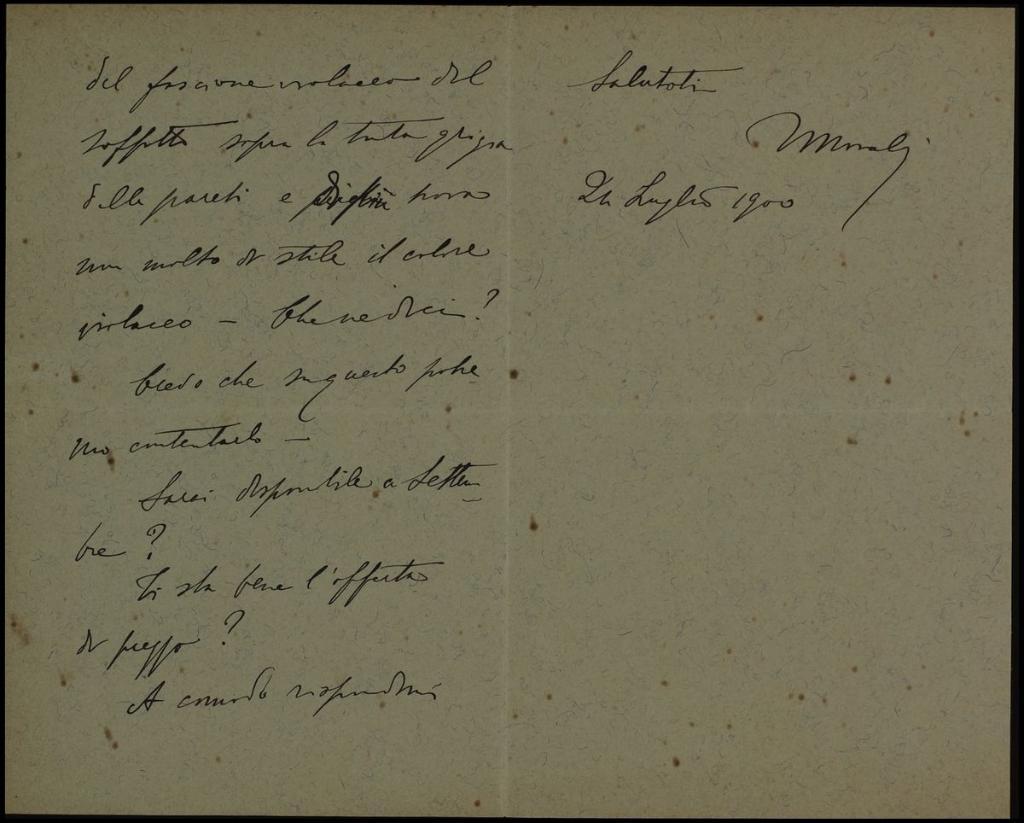 del fascione violaceo del
soffitto sopra la tinta grigia
delle pareti e trova
non molto di stile il colore
violaceo — Che ne dici?
Credo che su questo potre
mo contentarlo —
Sarai disponibile a Settem
bre?
Ti sta bene l'offerta
di prezzo?
A comodo rispondimi
Salutoti
24 Luglio 1900